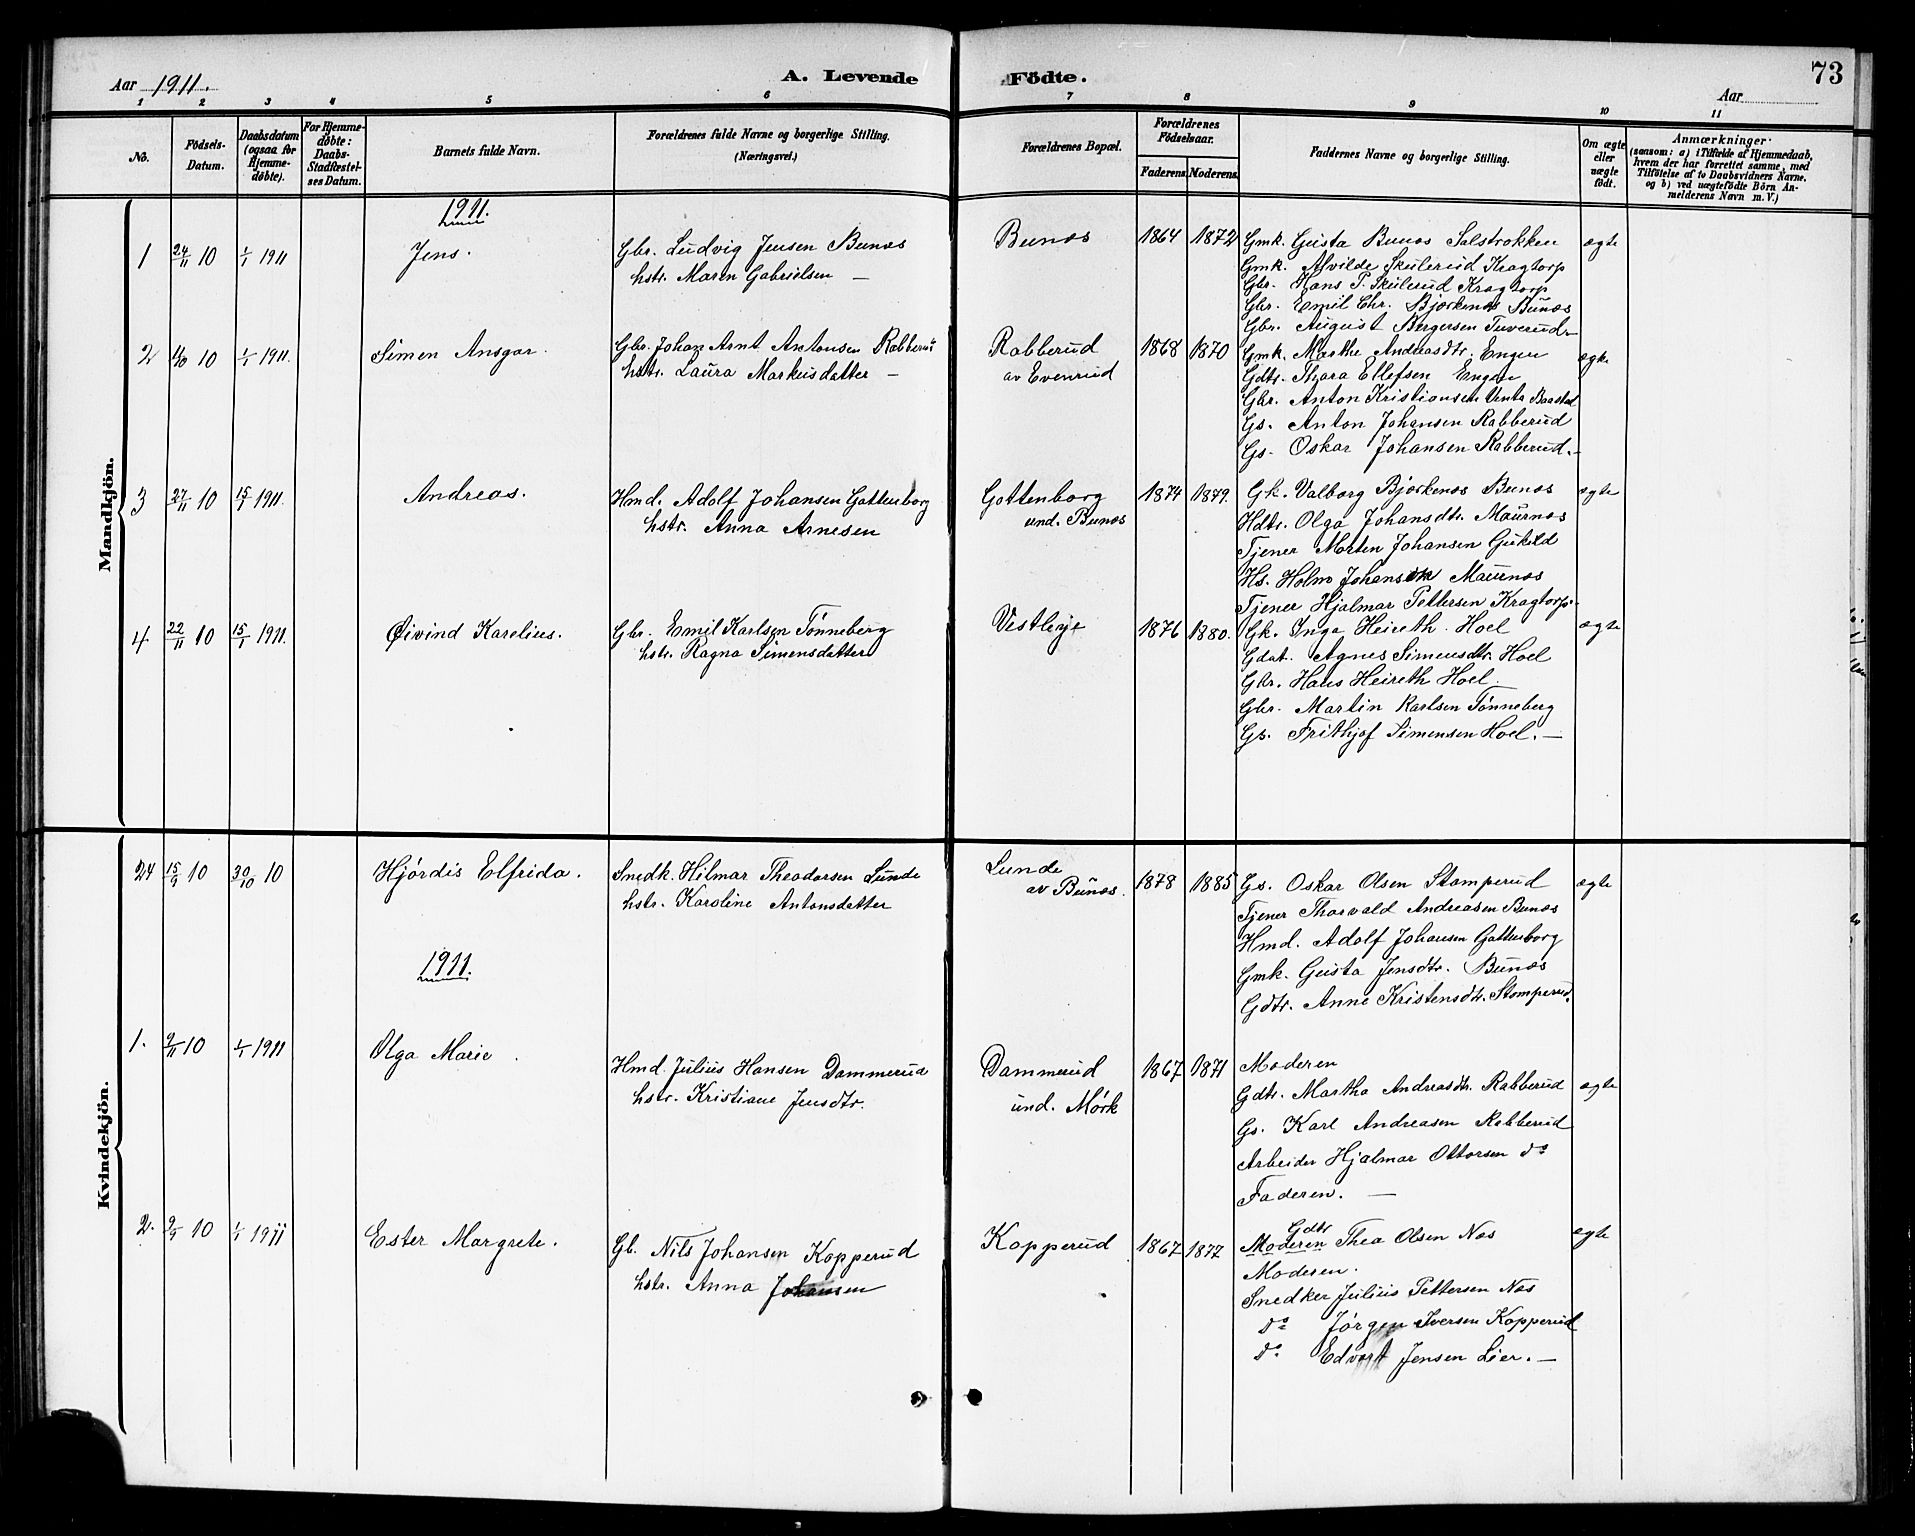 Aar 1911.
A. Levende Födte.
73
Aar
1 2 3 4 5 6 7 8 9 10 11
No.
Födsels-Datum.
Daabsdatum (ogsaa for Hjemme-døbte).
For Hjemme-døbte: Daabs-Stadfæstel-ses Datum.
Barnets fulde Navn.
Forældrenes fulde Navne og borgerlige Stilling.
(Næringsvei.)
Forældrenes Bopæl.
Forældrenes Födselsaar.
Faderens. Moderens.
Faddernes Navne og borgerlige Stilling.
Om ægte eller uægte födt.
Anmærkninger
(saasom: a) i Tilfælde af Hjemmedaab,
hvem der har forrettet samme, med
Tilföielse af to Daabsvidners Navne.
og b) ved uægtefödte Börn An-
melderens Navn m. V.)
Mandkjön.
1911.
1 24/11 10 1/1 1911 Jens. Gbr. Ludvig Jensen Bunæs Bunæs 1864 1872 Gmk. Gusta Bunæs Solstrokken ægte
hstr. Maren Gabrielsen —
Gmk. Alvilde Skulerud Kragtorp
Gbr. Hans P. Skulerud Kragtorp
Gbr. Emil Chr. Bjørkenæs Bunæs
Gbr. August Bergersen Tuverud
2 10 1/1 1911. Simen Ansgar. Gbr. Johan Arnt Antonsen Rabberud Rabberud 1868 1870 Gmk. Marthe Andreasdtr. Engen ægte
hstr. Laura Markusdatter — av Evenrud
Gdtr. Thora Ellefsen Engen
Gbr. Anton Kristiansen Baastad
Gs. Anton Johansen Rabberud
Gs. Oskar Johansen Rabberud.
3 27/11 10 15/1 1911. Andreas. Hmd. Adolf Johansen Gottenborg Gottenborg 1874 1879. Gk. Valborg Bjørkenæs Bunæs ægte
hstr. Anna Arnesen und. Bunæs
Hdtr. Olga Johansdtr. Maurnæs
Tjener Morten Johansen Gukild
Hs. Holm Johansen Maurnæs
Tjener Hjalmar Pettersen Kragtorp.
4. 22/11 10 15/1 1911. Øivind Karelius. Gbr. Emil Karlsen Tønneberg Vestleye 1876 1880. Gk. Inga Heireth Hoel ægte
hstr. Ragna Simensdatter
Gdat. Agnes Simensdtr. Hoel
Gbr. Hans Heireth Hoel.
Gbr. Martin Karlsen Tønneberg
Gs. Frithjof Simensen Hoel. —
Kvindekjön.
24 15/9 10 30/10 10 Hjørdis Elfrida. Snedk. Hilmar Theodorsen Lunde Lunde 1878 1885 Gs. Oskar Olsen Stomperud ægte
hstr. Karoline Antonsdatter av Bunæs.
Tjener Thorvald Andreasen Bunæs
Hmd. Adolf Johansen Gottenborg
Gmk. Gusta Jensdtr. Bunæs
Gdtr. Anne Kristensdtr. Stomperud.
1911.
1. 9/11 10 1/1 1911 Olga Marie. Hmd. Julius Hansen Dammerud Dammerud 1867 1871 Moderen
hstr. Kristiane Jensdtr. und. Mørk
Gdtr. Martha Andreasdtr. Rabberud ægte
Gs. Karl Andreasen Rabberud
Arbeider Hjalmar Ottorsen do
Faderen. —
2. 9/9 10 1/1 1911 Ester Margrete. Gb. Nils Johansen Kopperud Kopperud 1867 1877 Moderen Gdtr Thea Olsen Næs ægte
hstr. Anna Johansen
Moderen.
Snedker Julius Pettersen Næs
do Jørgen Iversen Kopperud
do Edvart Jensen Lier. —